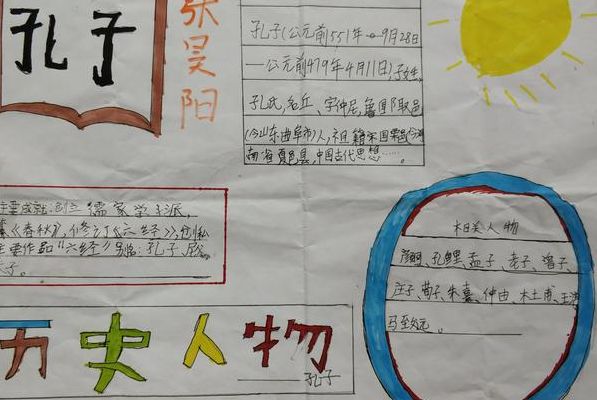 孔子
张昊阳
孔子(公元前551年 9月28日
—公元前479年4月11日)子姓,
孔氏,名丘、字仲尼,鲁国陬邑
(今山东曲阜市)人,祖籍宋国栗邑
南省夏邑县,中国古代思想……
主要成就:创立儒家学派,
《春秋》,修订《六经》,创私
主要作品“六经”别名:孔子,
相关人物
颜回、孔鲤、孟子、老子、曾子、
庄子、荀子、朱熹、仲由、杜甫、
历史人物
——孔子